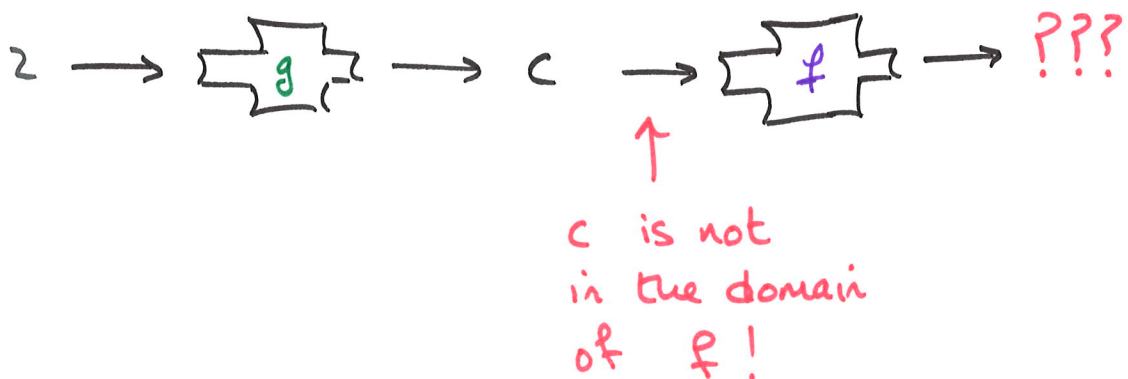 2 → g → c → f → ???
c is not
in the domain
of f!